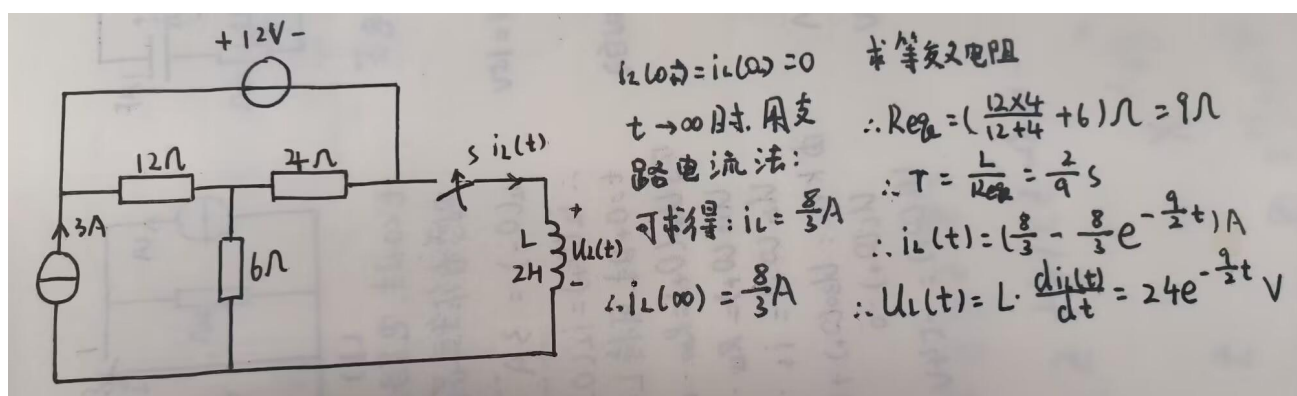 + 12V -
12Ω
4Ω
S iL(t)
3A
6Ω
L
2H
+
UL(t)
-
iL(0+)=iL(0-)=0
t→∞时.用支
路电流法:
可求得:iL=8/3A
∴iL(∞)=8/3A
求等效电阻
∴Req=(12×4/12+4+6)Ω=9Ω
∴τ=L/Req=2/9s
∴iL(t)=(8/3-8/3e^-9/2t)A
∴UL(t)=L·diL(t)/dt=24e^-9/2tV